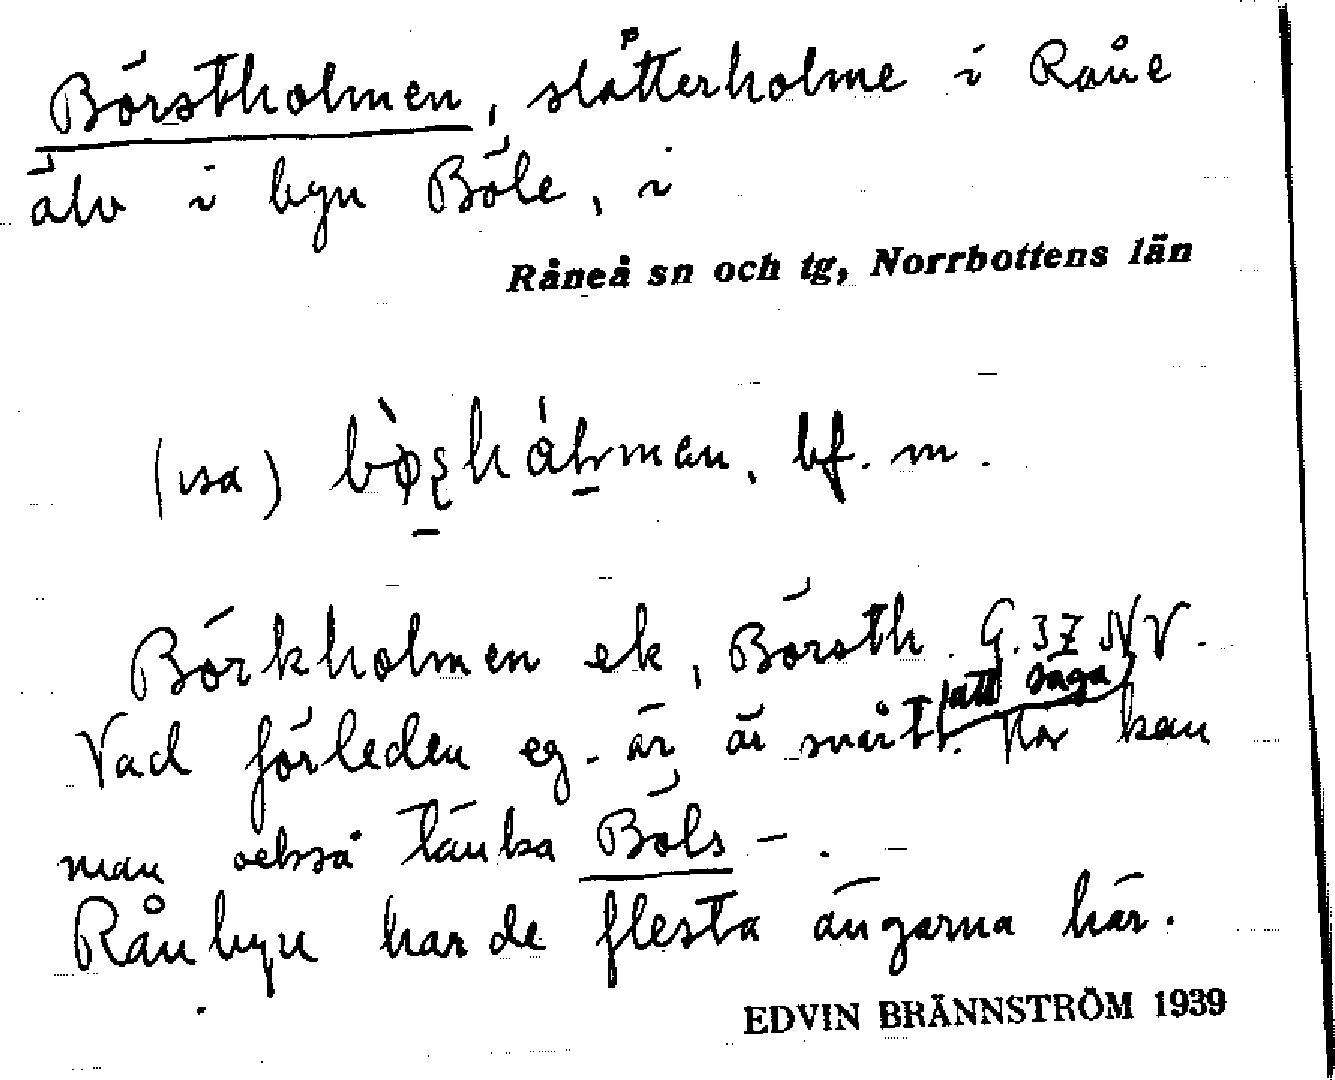 Börstholmen, slåtterholme i Råne
älv i byn Böle, i
Råneå sn och tg, Norrbottens län
(isa) bm. bf. m.
Börkholmen ek, Börsth. G. 3 Z NV.
att säga
Vad förleden eg. är är svårt. Här kan
man också tänka Böls –.
Rånbyn har de flesta ängarna här.
EDVIN BRÄNNSTRÖM 1939